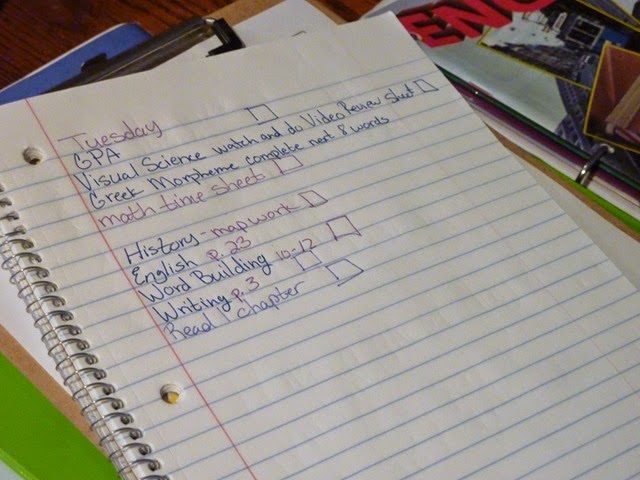 Tuesday
GPA
Visual Science watch and do Video Review sheet
Greek Morpheme complete next 8 words
math-time sheet
History-map work
English p. 23
Word Building 10-12
Writing p. 3
Read 1 chapter
ENC